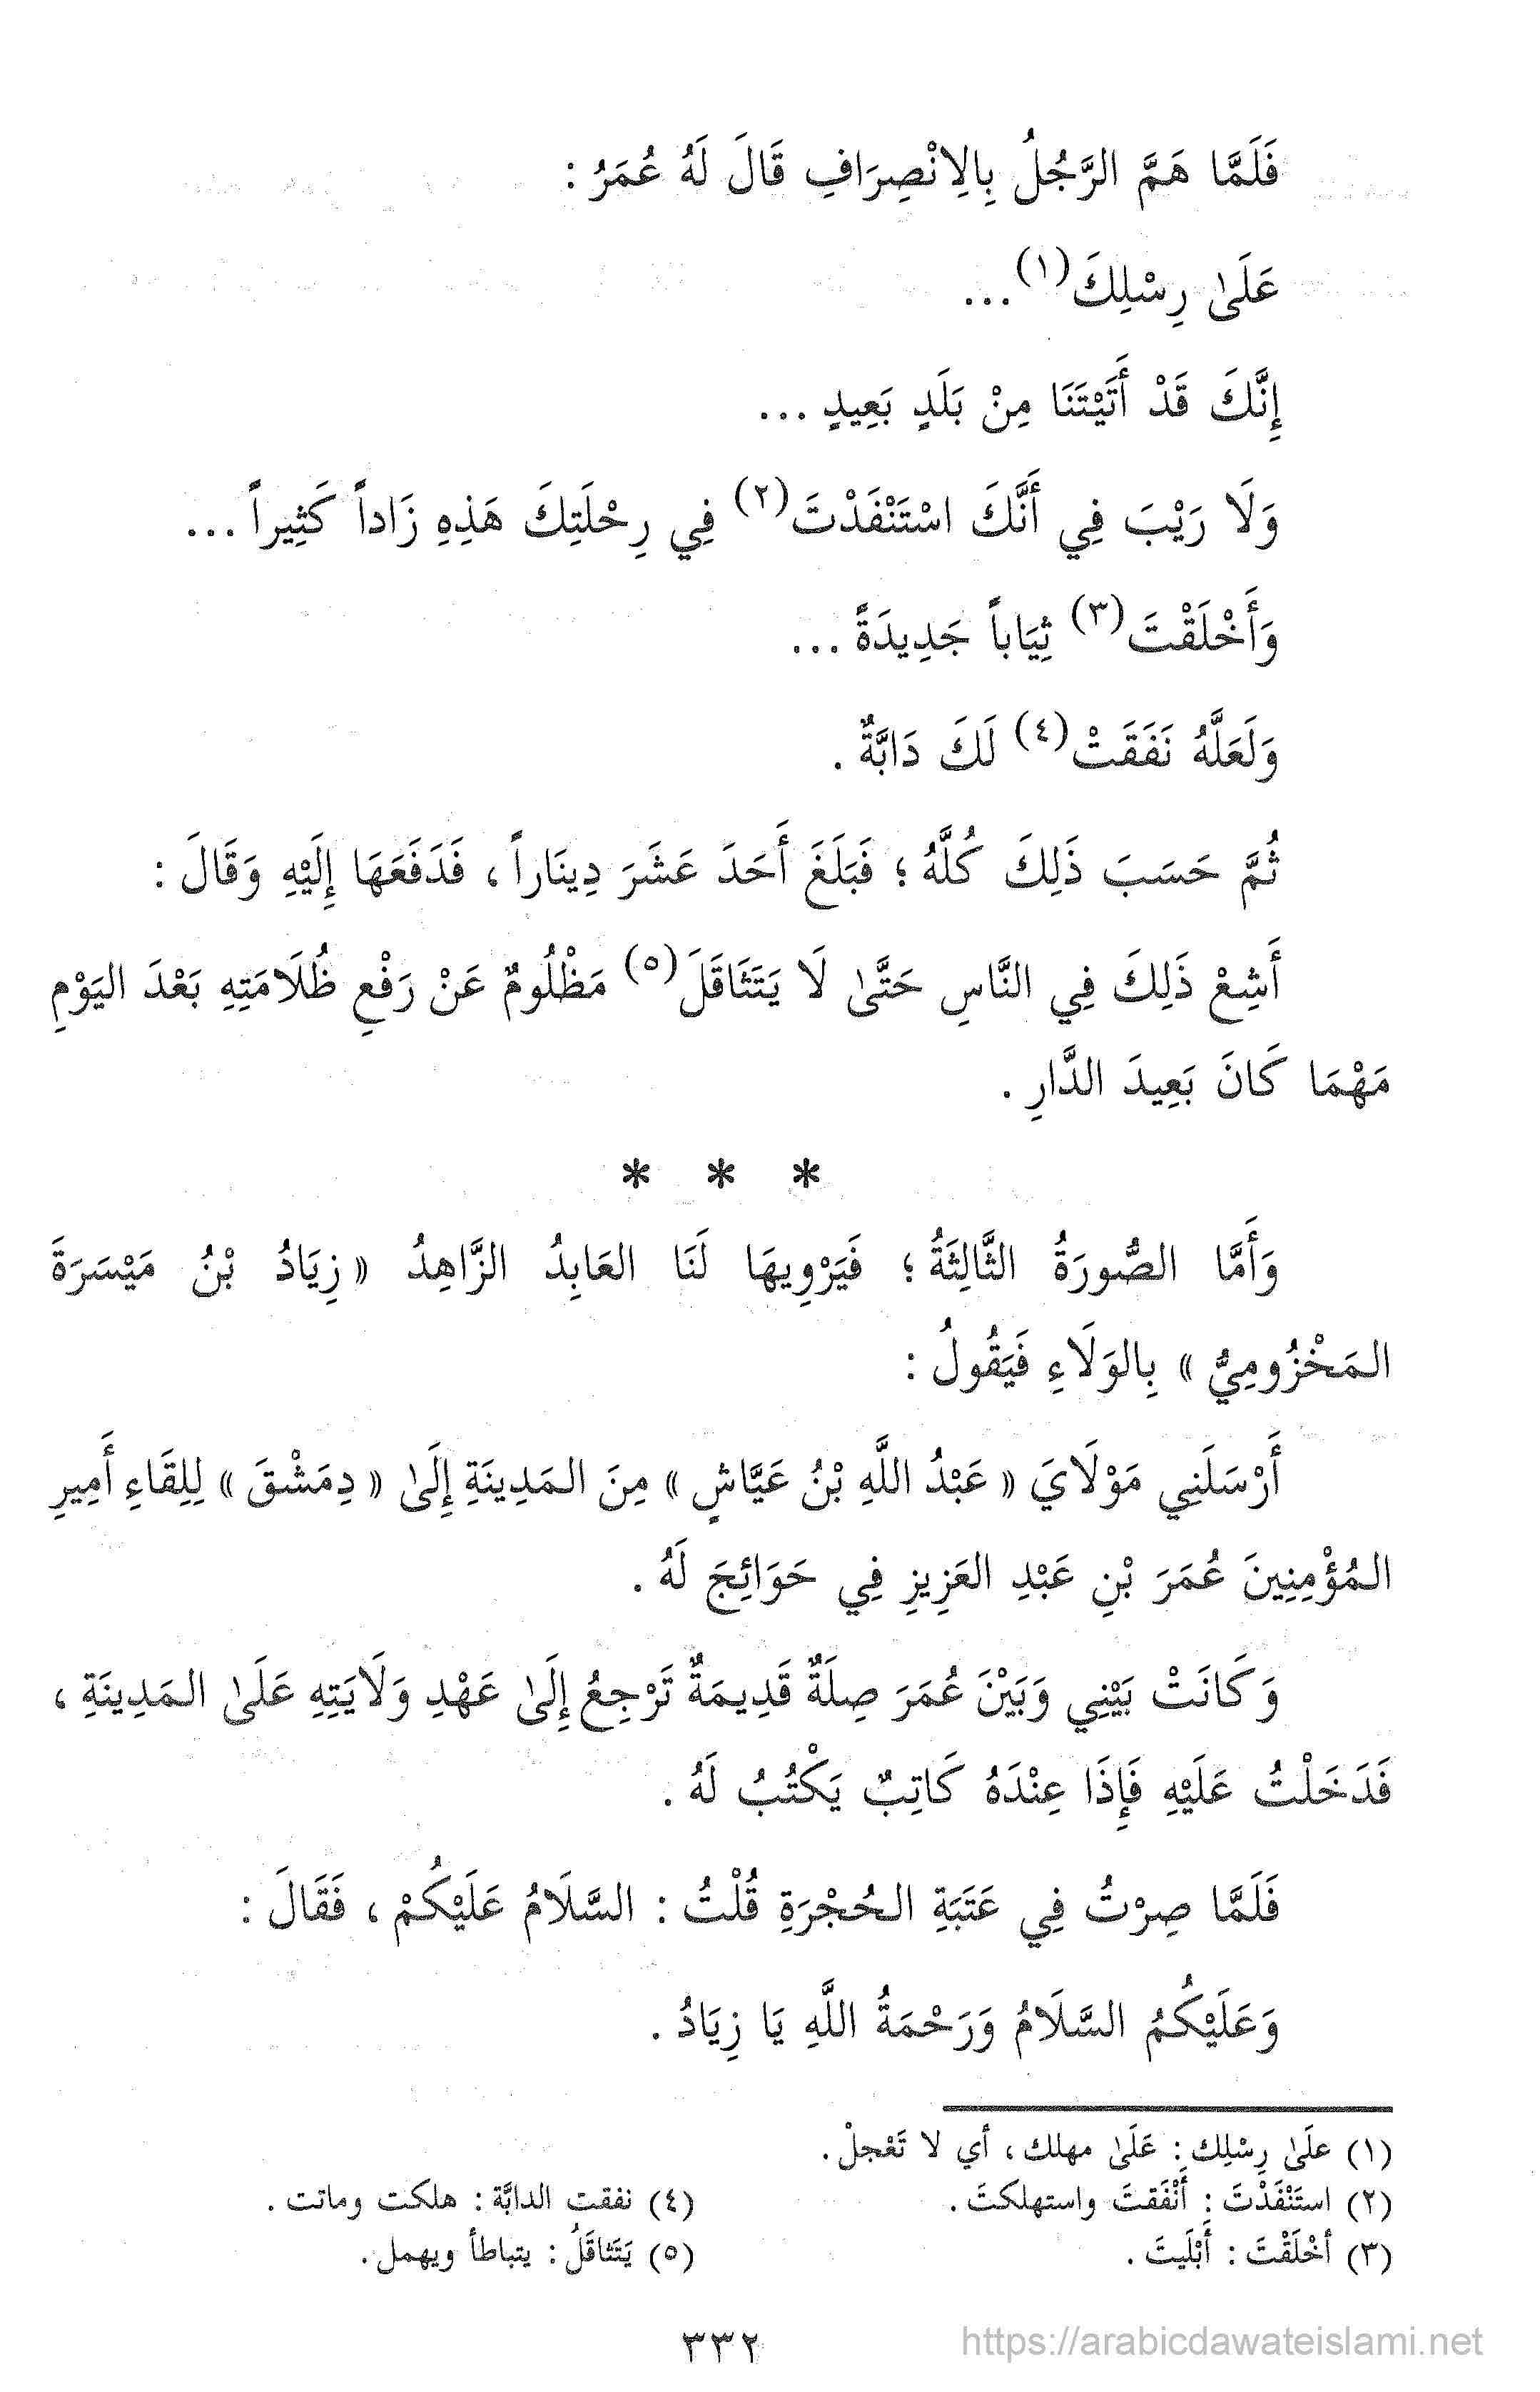 فَلَمَّا هَمَّ الرَّجُلُ بِالِانْصِرَافِ قَالَ لَهُ عُمَرُ :
عَلَىٰ رِسْلِكَ(١)...
إِنَّكَ قَدْ أَتَيْتَنَا مِنْ بَلَدٍ بَعِيدٍ ...
وَلَا رَيْبَ فِي أَنَّكَ اسْتَنْفَدْتَ(٢) فِي رِحْلَتِكَ هَذِهِ زَاداً كَثِيراً ...
وَأَخْلَقْتَ(٣) ثِيَاباً جَدِيدَةً ...
وَلَعَلَّهُ نَفَقَتْ(٤) لَكَ دَابَّةٌ .
ثُمَّ حَسَبَ ذَلِكَ كُلَّهُ ؛ فَبَلَغَ أَحَدَ عَشَرَ دِينَاراً ، فَدَفَعَهَا إِلَيْهِ وَقَالَ :
أَشِعْ ذَلِكَ فِي النَّاسِ حَتَّىٰ لَا يَتَثَاقَلَ(٥) مَظْلُومٌ عَنْ رَفْعِ ظُلَامَتِهِ بَعْدَ اليَوْمِ
مَهْمَا كَانَ بَعِيدَ الدَّارِ .
* * *
وَأَمَّا الصُّورَةُ الثَّالِثَةُ ؛ فَيَرْوِيهَا لَنَا العَابِدُ الزَّاهِدُ « زِيَادُ بْنُ مَيْسَرَةَ
المَخْزُومِيُّ » بِالوَلَاءِ فَيَقُولُ :
أَرْسَلَنِي مَوْلَايَ « عَبْدُ اللَّهِ بْنُ عَيَّاشٍ » مِنَ المَدِينَةِ إِلَىٰ « دِمَشْقَ » لِلِقَاءِ أَمِيرِ
المُؤْمِنِينَ عُمَرَ بْنِ عَبْدِ العَزِيزِ فِي حَوَائِجَ لَهُ .
وَكَانَتْ بَيْنِي وَبَيْنَ عُمَرَ صِلَةٌ قَدِيمَةٌ تَرْجِعُ إِلَىٰ عَهْدِ وَلَايَتِهِ عَلَىٰ المَدِينَةِ ،
فَدَخَلْتُ عَلَيْهِ فَإِذَا عِنْدَهُ كَاتِبٌ يَكْتُبُ لَهُ .
فَلَمَّا صِرْتُ فِي عَتَبَةِ الحُجْرَةِ قُلْتُ : السَّلَامُ عَلَيْكُمْ ، فَقَالَ :
وَعَلَيْكُمُ السَّلَامُ وَرَحْمَةُ اللَّهِ يَا زِيَادُ .
(١) علَىٰ رِسْلِك : عَلَىٰ مهلك ، أي لا تَعْجلْ .
(٢) استَنْفَدْتَ : أَنْفَقتَ واستهلكتَ .
(٣) أخْلَقْتَ : أَبْلَيتَ .
(٤) نفقت الدابَّة : هلكت وماتت .
(٥) يَتَثاقَلُ : يتباطأ ويهمل .
٣٣٢
https://arabicdawateislami.net